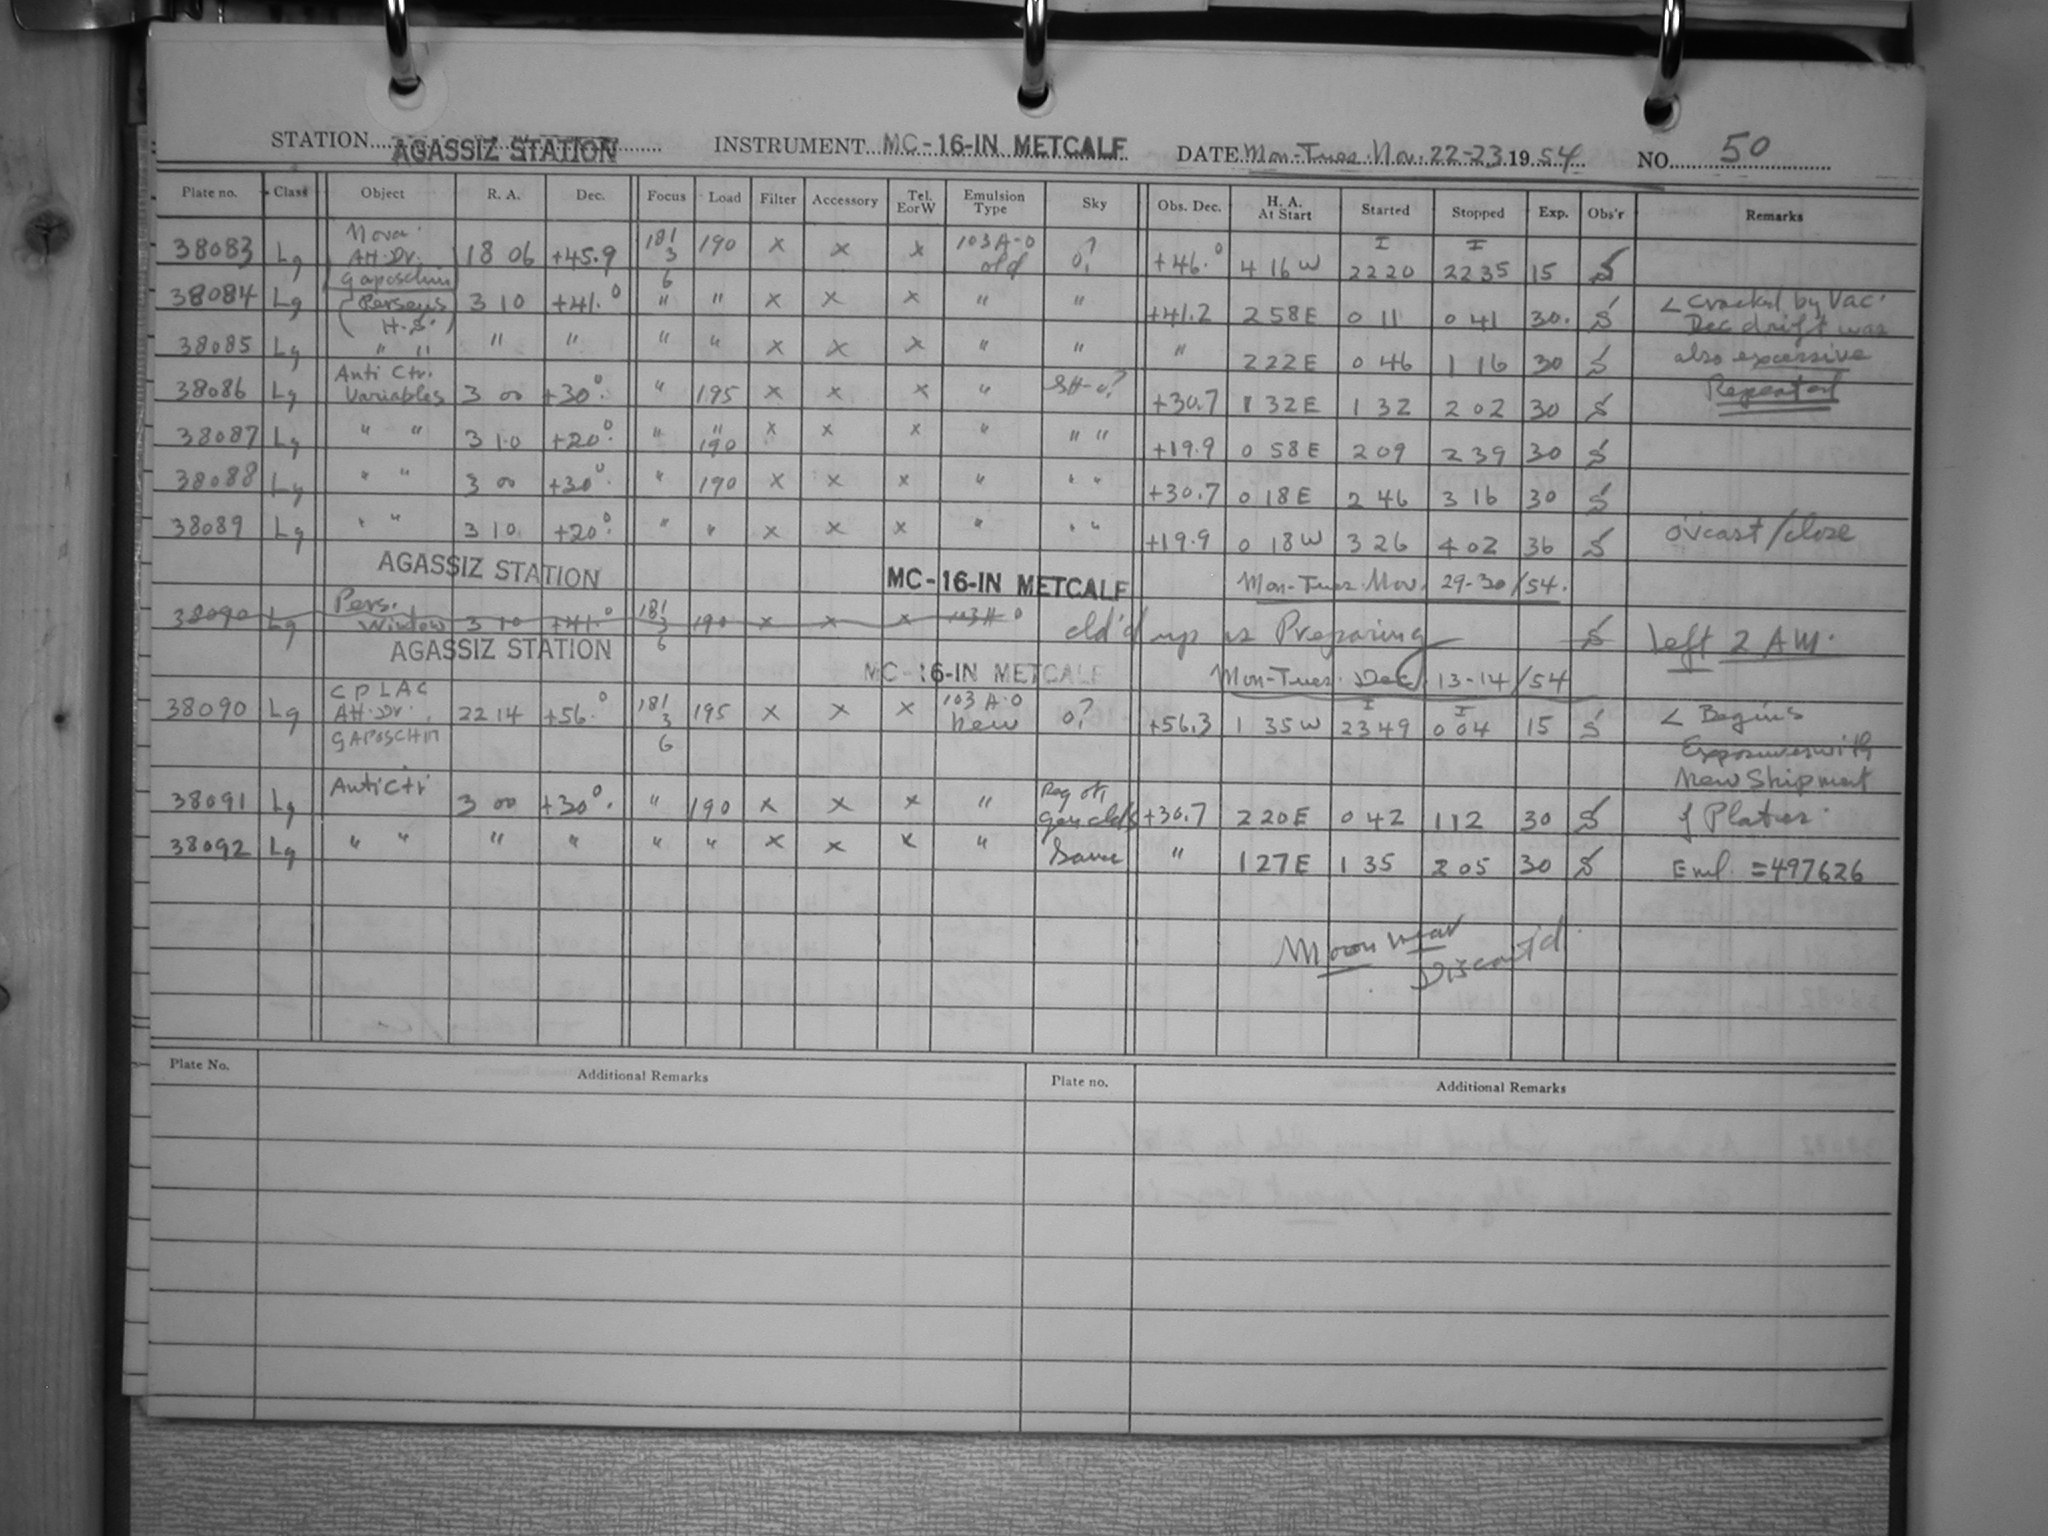 STATION AGASSIZ STATION INSTRUMENT MC-16-IN METCALF DATE Mon-Tues. Nov. 22-23 1954 NO. 50
Plate no. Class Object R. A. Dec. Focus Load Filter Accessory Tel. E or W Emulsion Type Sky Obs. Dec. H. A. At Start Started Stopped Exp. Obs'r Remarks
Nova
38083 Lg AH. Dr. 18 06 +45.9 181 3 6 190 x x x 103A-O old o? +46.° 4 16 W I 22 20 I 22 35 15 S
Gaposchin
38084 Lg (Perseus 3 10 +41.° " " x x x " " +41.2 2 58 E 0 11 0 41 30. S < Cracked by Vac.
H.S.) Dec drift was
38085 Lg " " " " " " x x x " " " 2 22 E 0 46 1 16 30 S also excessive
Anti Ctr.
38086 Lg Variables 3 00 +30°. " 195 x x x " SH-o? +30.7 1 32 E 1 32 2 02 30 S Repeated
38087 Lg " " 3 10 +20°. " " 190 x x x " " " +19.9 0 58 E 2 09 2 39 30 S
38088 Lg " " 3 00 +30°. " 190 x x x " " " +30.7 0 18 E 2 46 3 16 30 S
38089 Lg " " 3 10 +20°. " " x x x " " " +19.9 0 18 W 3 26 4 02 36 S o'vcast/close
AGASSIZ STATION MC-16-IN METCALF Mon-Tues. Nov. 29-30/54.
38090 Lg Pers. Window 3 10 +41.° 181 3 6 190 x x x 103A-O cld'd up as Preparing S Left 2 AM.
AGASSIZ STATION MC-16-IN METCALF Mon-Tues. Dec. 13-14/54
CP LAC
38090 Lg AH. Dr. 22 14 +56.° 181 3 6 195 x x x 103A-O New o? +56.3 1 35 W I 23 49 I 0 04 15 S < Begins
GAPOSCHIN Exposures with
New Shipment
38091 Lg Anti Ctr 3 00 +30°. " 190 x x x " +30.7 2 20 E 0 42 1 12 30 S of Plates.
38092 Lg " " " " " " x x x " Same " 1 27 E 1 35 2 05 30 S Eml. =497626
Moon near
Discont'd
Plate No. Additional Remarks Plate no. Additional Remarks